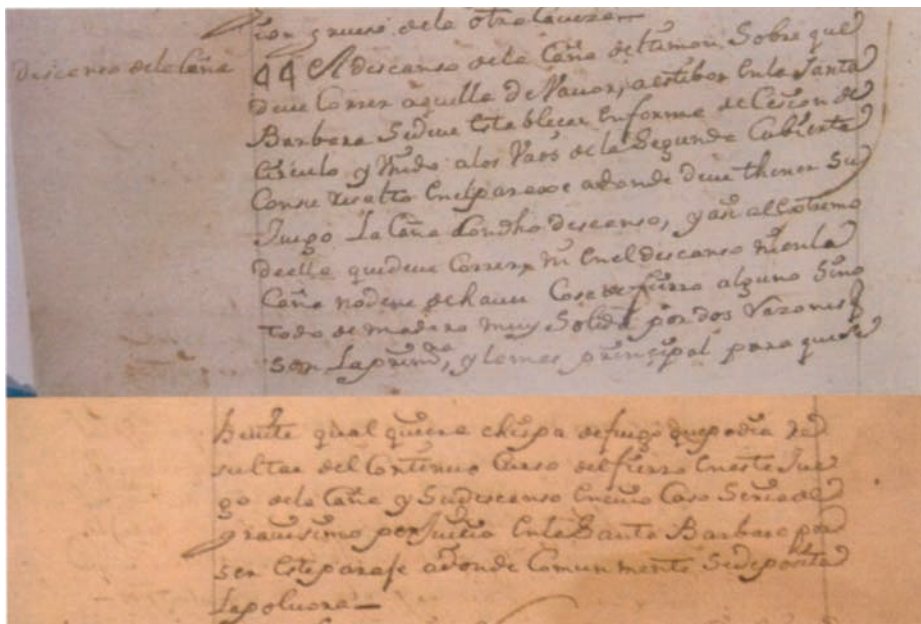 sion grueso dela otra Cavesa —
descanso dela Caña
44 El descanso dela Caña del timon Sobre que
deve Correr aquella de Vavor, a estibor Enla Santa
Barbara Sedeve establecer Enforma de Cescion de
Circulo y Unido alos Vaos dela Segunda Cubierta
Consu resalto Enelparaxe adonde deve thener Su
Juego La Caña Condho descanso, y asi al Extremo
deella quedeve Correr, ni En el descanso nienla
Caña nodeve dehaver Cosa de fierro alguno Sino
todo de madera muy Solida por dos Razones q
son La prim.ra, y lamas principal para quese
Bevite qual quiera chispa defuego quepodia re
sultar del Continuo Curso del fierro Eneste Jue
go dela Caña y Sudescanso Encuio Caso Seria de
gravisimo perjuicio Enla Santa Barbara por
ser Esteparaje adonde Comunmente Sedeposita
Lapolvora —